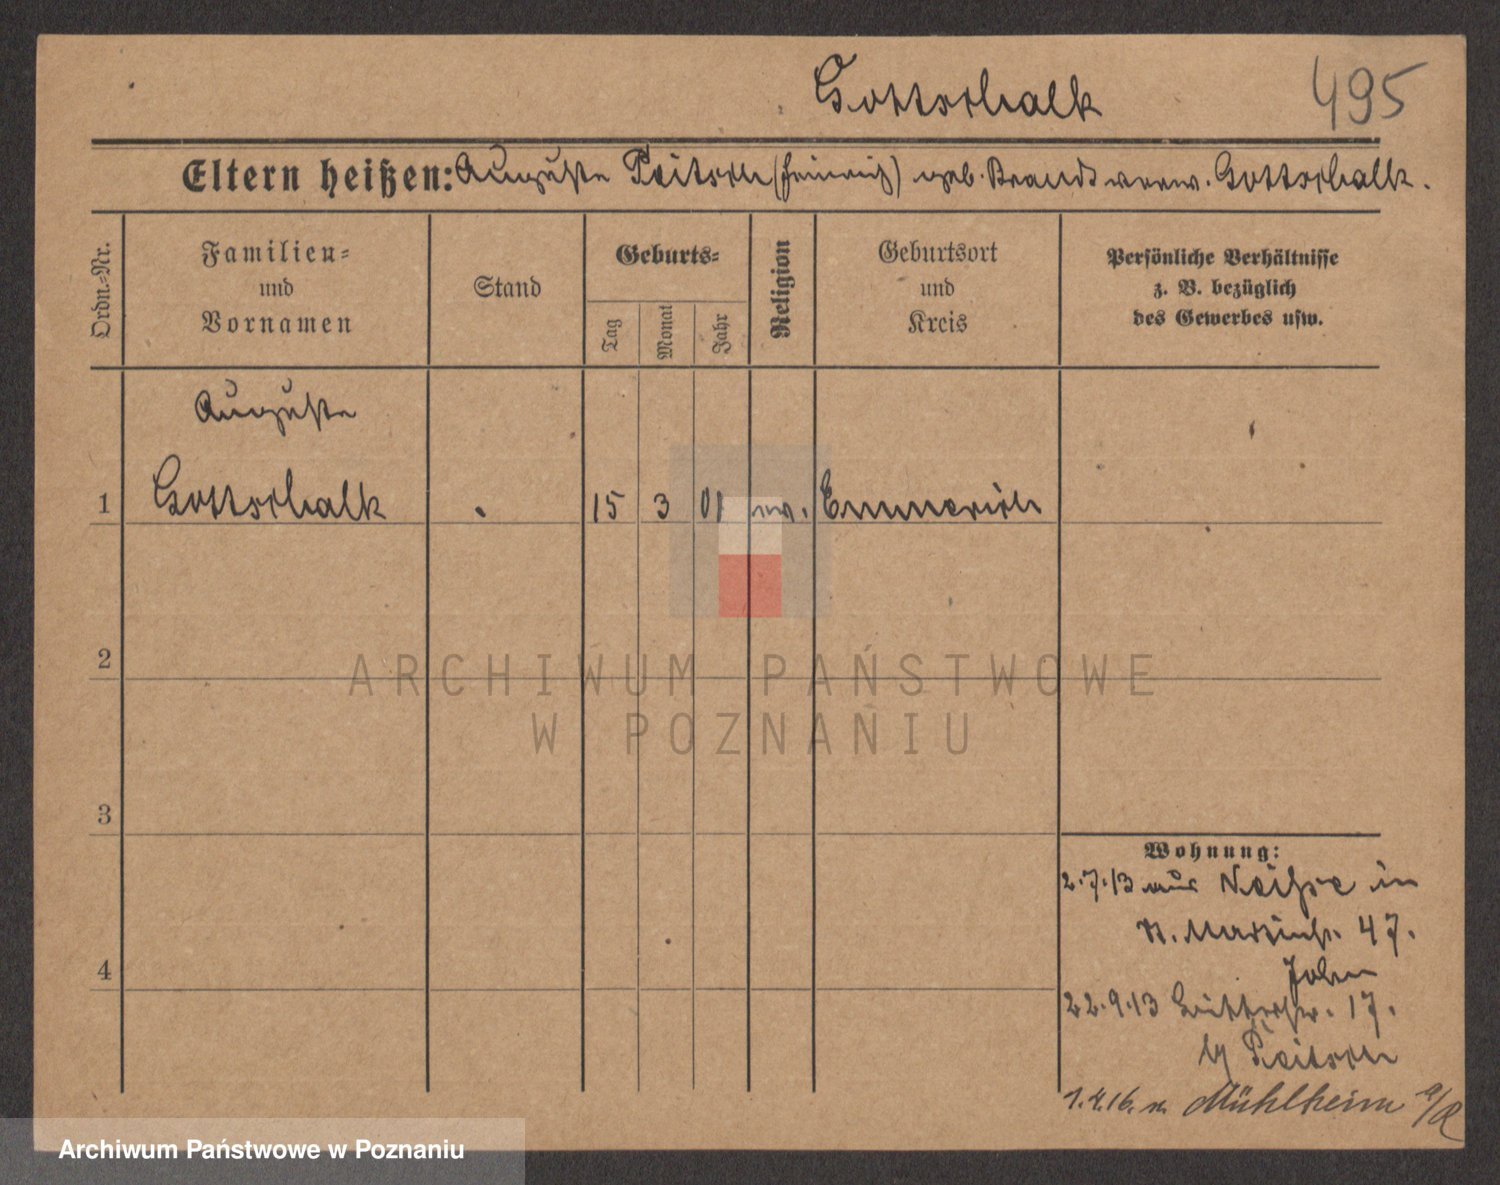 Gottschalk 495
Eltern heißen: Auguste Peitsch (Heinrich) geb. Brandt verw. Gottschalk.
Ordn.-Nr.
Familien-
und
Vornamen
Stand
Geburts-
Tag
Monat
Jahr
Religion
Geburtsort
und
Kreis
Persönliche Verhältnisse
z. B. bezüglich
des Gewerbes usw.
Auguste
1 Gottschalk . 15 3 01 ev. Emmerich
2
3
4
Wohnung:
2.7.13 aus Neisse in
St. Martinstr. 47.
22.9.13 Ritterstr. 17.
b/ Peitsch
1.4.16. n. Mühlheim a/R
ARCHIWUM PAŃSTWOWE
W POZNANIU
Archiwum Państwowe w Poznaniu